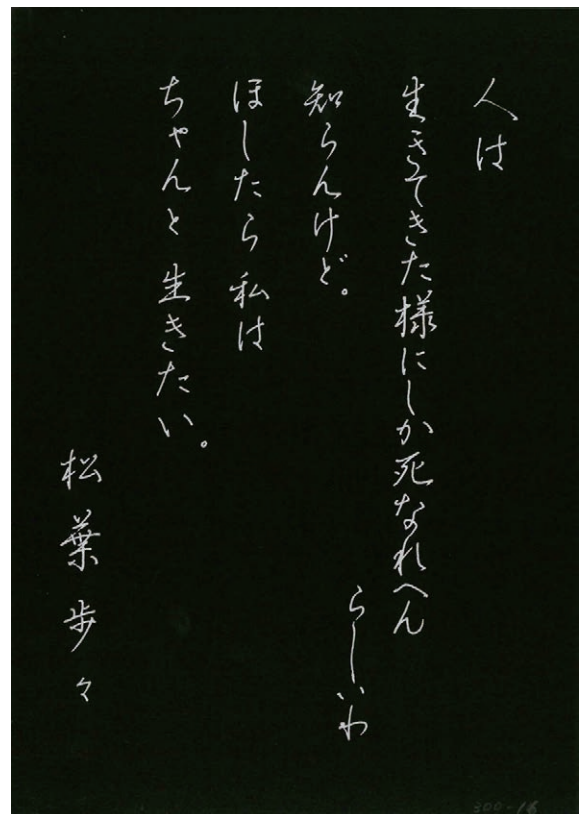 人は
生きてきた様にしか死なれへん
らしいわ
知らんけど。
ほしたら私は
ちゃんと生きたい。
松葉歩々
300-16